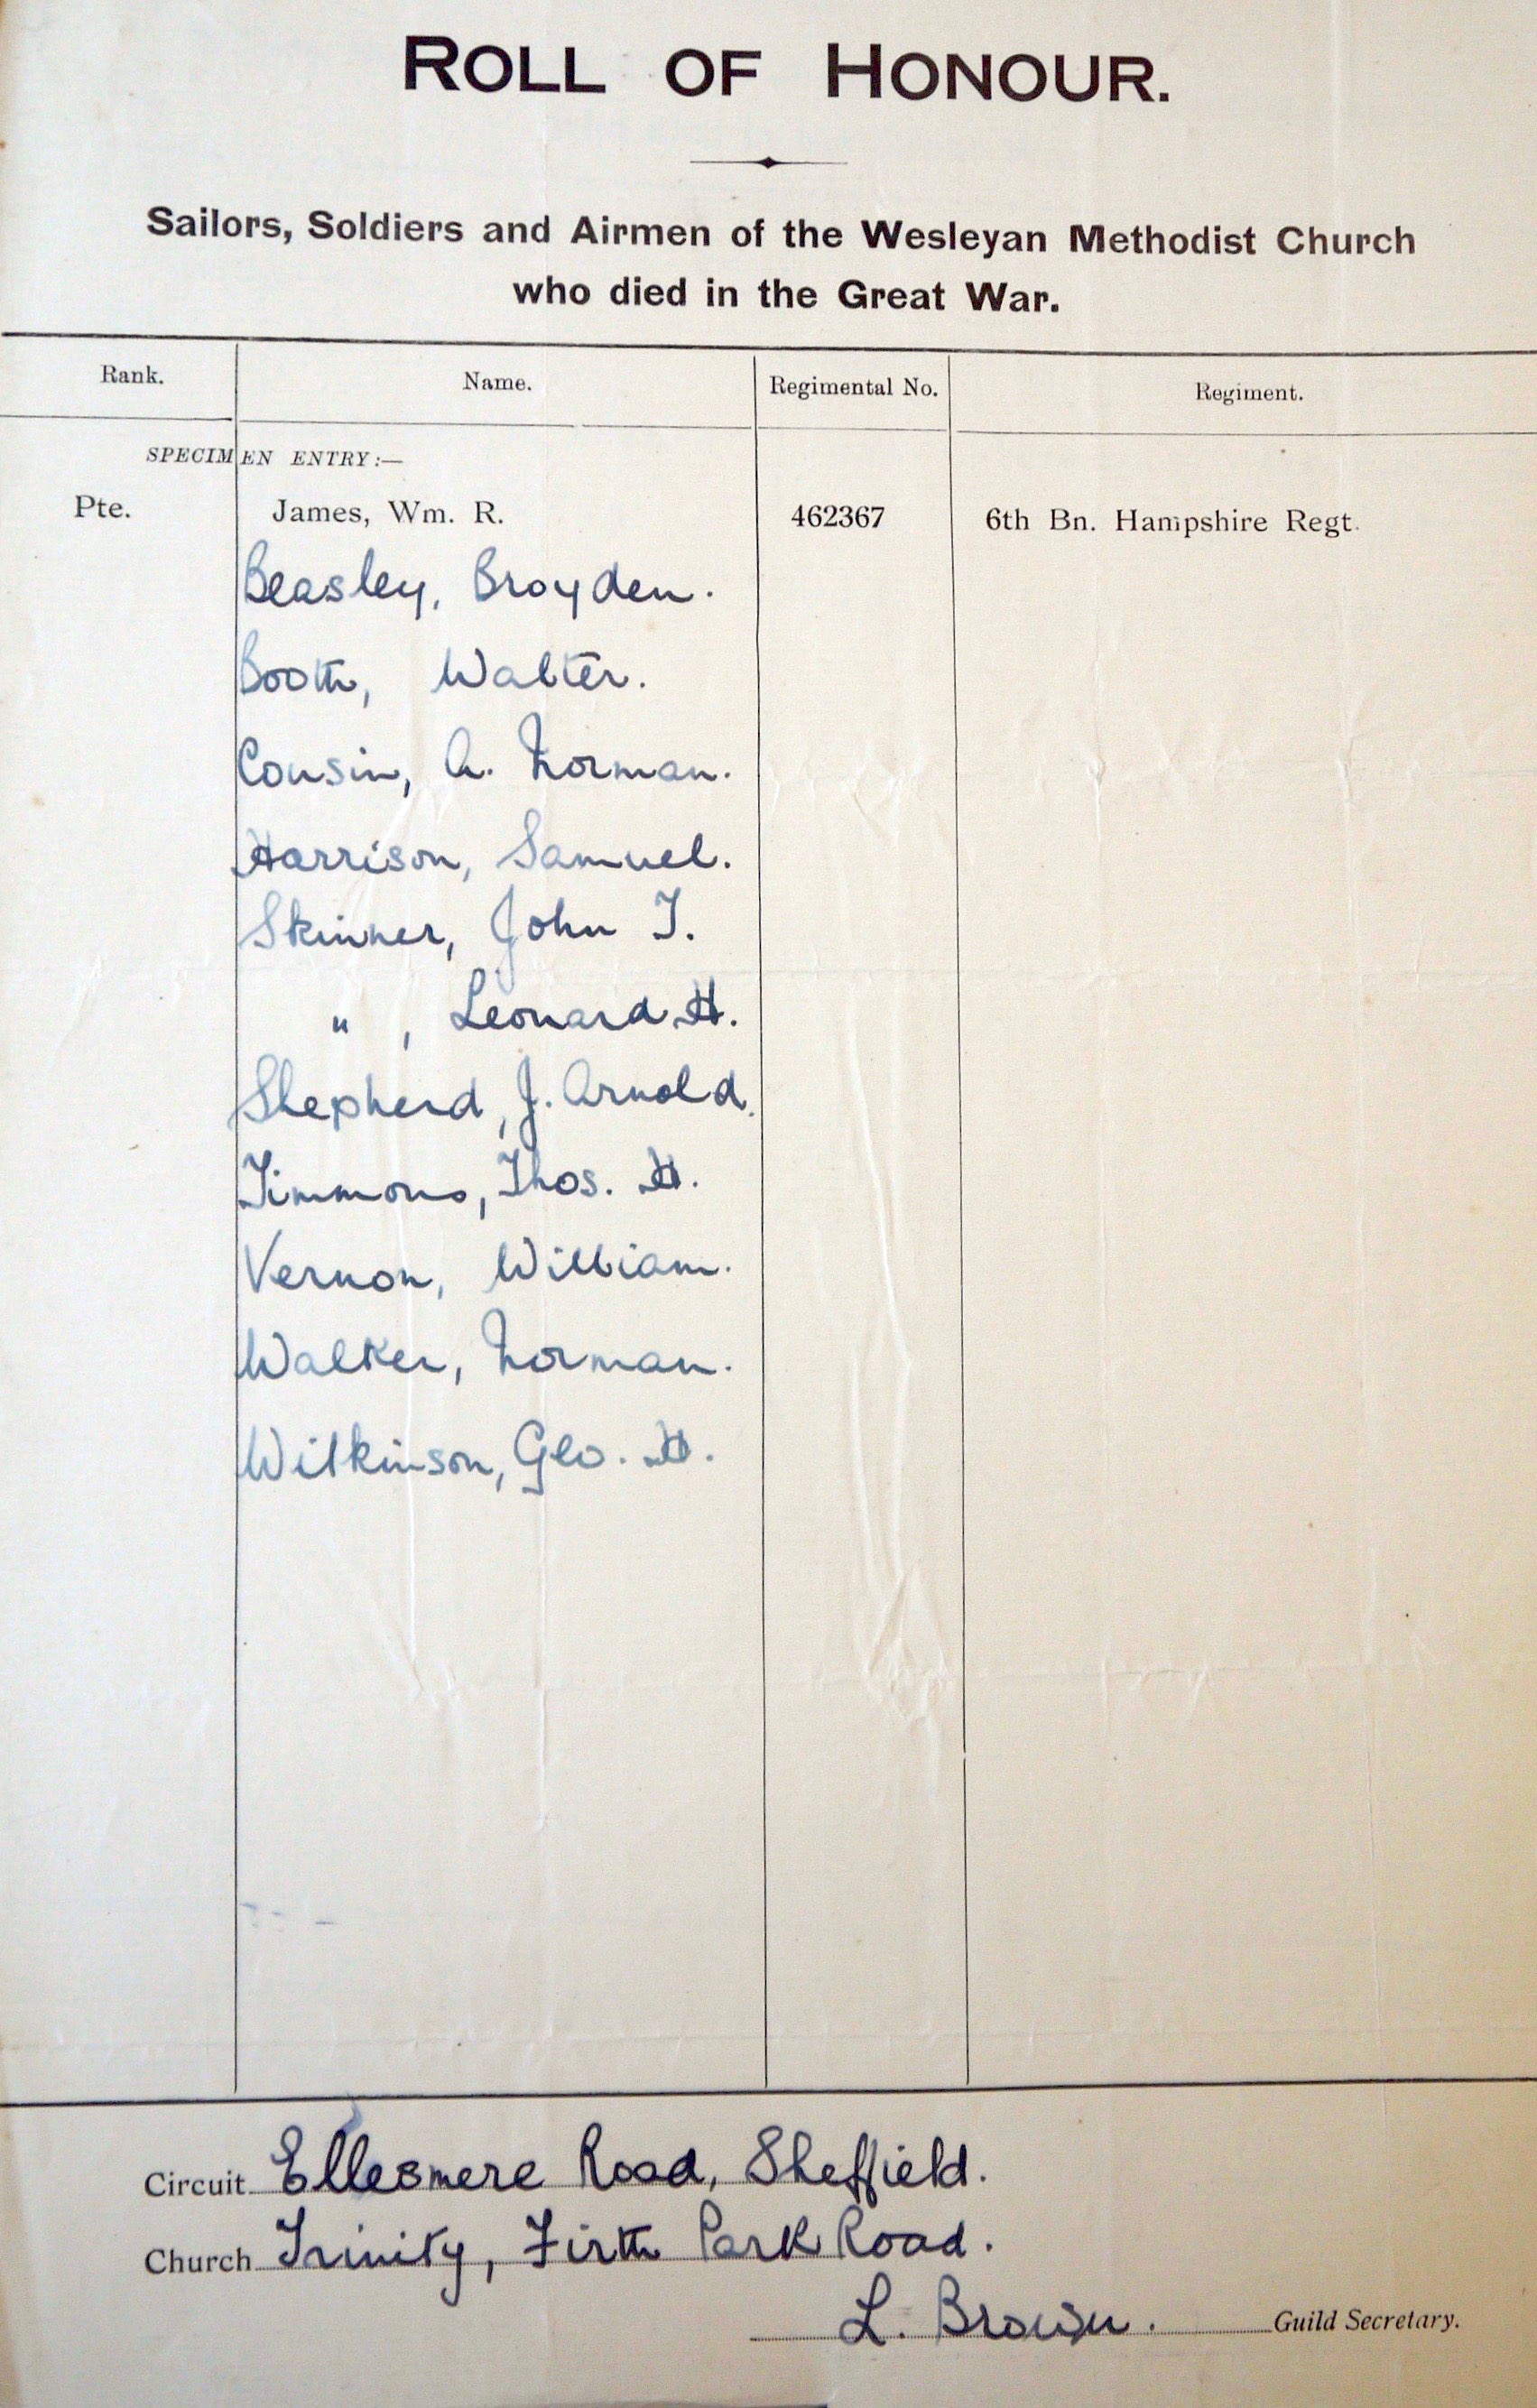 ROLL OF HONOUR.
Sailors, Soldiers and Airmen of the Wesleyan Methodist Church
who died in the Great War.
Rank. Name. Regimental No. Regiment.
SPECIMEN ENTRY:—
Pte. James, Wm. R. 462367 6th Bn. Hampshire Regt.
Beasley, Broyden.
Booth, Walter.
Cousin, A. Norman.
Harrison, Samuel.
Skinner, John T.
" , Leonard H.
Shepherd, J. Arnold.
Timmons, Thos. H.
Vernon, William.
Walker, Norman.
Wilkinson, Geo. H.
Circuit Ellesmere Road, Sheffield.
Church Trinity, Firth Park Road.
L. Brown. Guild Secretary.